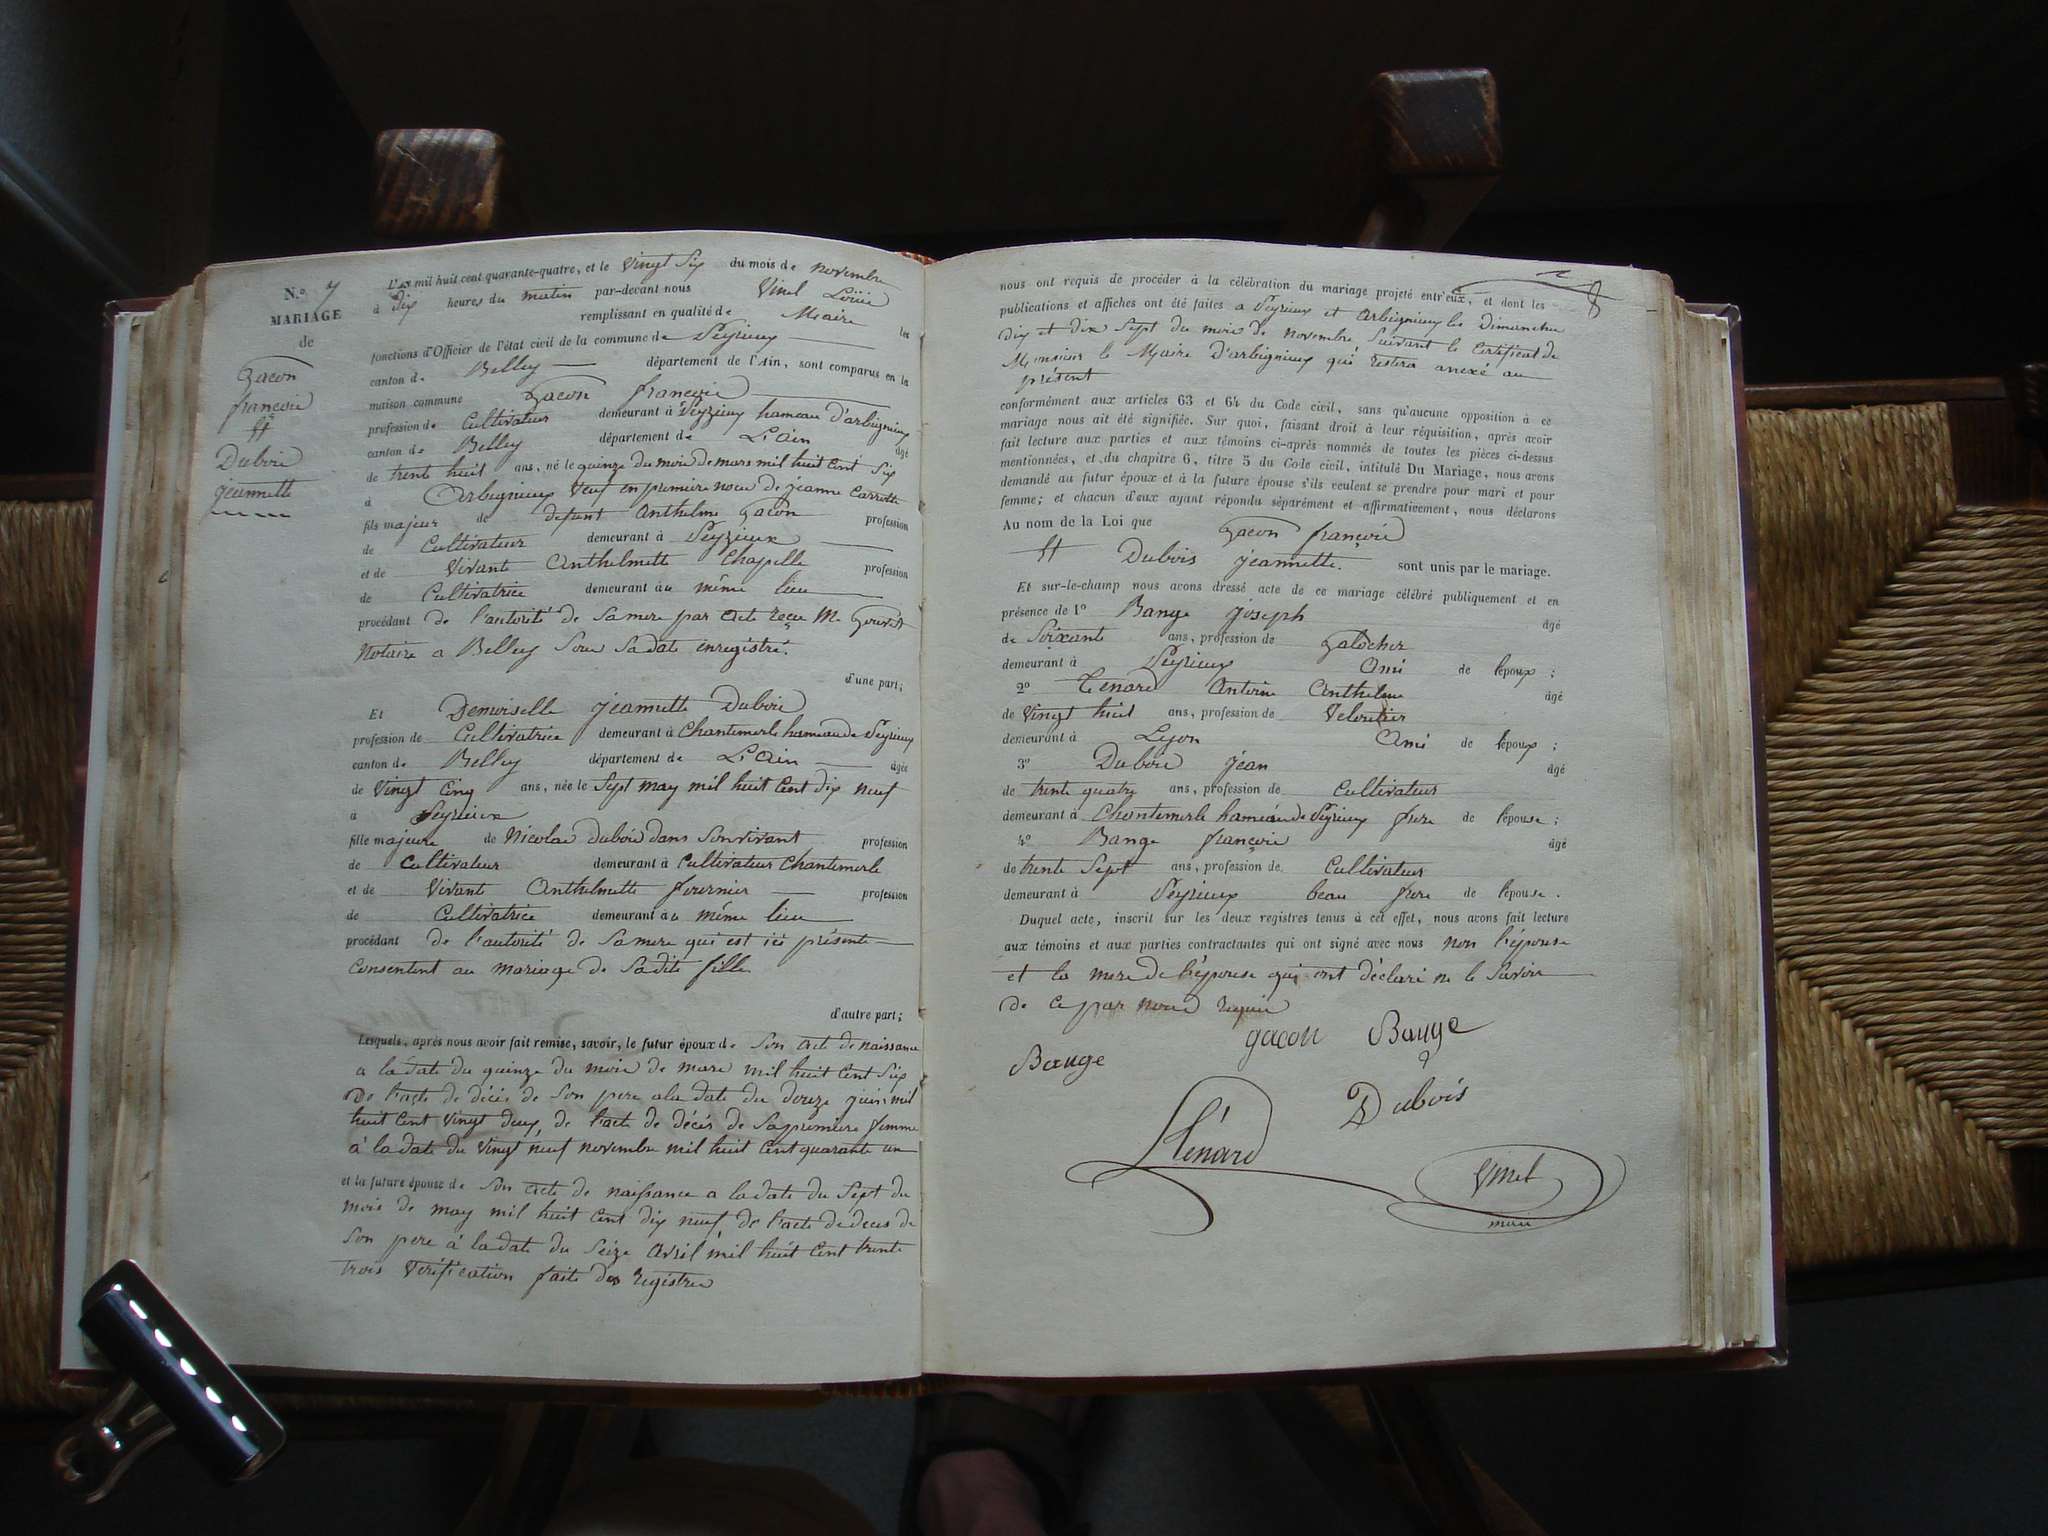 N.º 7
MARIAGE
de
Gacon
françois
et
Dubois
jeannette
L'an mil huit cent quarante-quatre, et le vingt six du mois de novembre
à dix heures du matin par-devant nous Vinel Loüis
remplissant en qualité de Maire les
fonctions d'Officier de l'état civil de la commune de Peyzieux
canton de Belley département de l'Ain, sont comparus en la
maison commune Gacon françois
profession de Cultivateur demeurant à Peyzieux hameau d'arbignieux
canton de Belley département de L'ain âgé
de trente huit ans, né le quinze du mois de mars mil huit Cent Six
à Arbignieux Veuf en premiere noce de jeanne Carrotte
fils majeur de defunt Anthelme Gacon profession
de Cultivateur demeurant à Peyzieux
et de Vivante Anthelmette Chapelle profession
de Cultivatrice demeurant au même lieu
procédant de l'autorité de Sa mere par acte reçu Me
Notaire a Belley Sous Sa date enregistré.
d'une part;
Et Demoiselle jeannette Dubois
profession de Cultivatrice demeurant à Chantemerle hameau de Peyrieux
canton de Belley département de L'Ain âgée
de Vingt Cinq ans, née le Sept may mil huit Cent dix neuf
a Peyrieux
fille majeure de Nicolas dubois dans Son vivant profession
de Cultivateur demeurant à Cultivateur Chantemerle
et de Vivante Anthelmette fournier profession
de Cultivatrice demeurant au même lieu
procédant de l'autorité de Sa mere qui est ici présente
Consentent au mariage de Sa dite fille
d'autre part;
Lesquels, après nous avoir fait remise, savoir, le futur époux de Son acte de naissance
a la date du quinze du mois de mars mil huit Cent Six
De l'acte de décès de Son pere a la date du douze juin mil
huit Cent Vingt deux, de l'acte de décés de Sa premiere femme
à la date du Vingt neuf novembre mil huit Cent quarante un
et la future épouse de Son acte de naissance a la date du Sept du
mois de may mil huit Cent dix neuf de l'acte de deces de
Son pere à la date du Seize avril mil huit Cent trente
trois Verification faite des registres
8
nous ont requis de procéder à la célébration du mariage projeté entr'eux, et dont les
publications et affiches ont été faites a Peyrieux et arbignieux les Dimanches
dix et dix Sept du mois de Novembre, Suivant le Certificat de
Monsieur le Maire D'arbignieux qui restera anexé au
présent
conformément aux articles 63 et 64 du Code civil, sans qu'aucune opposition à ce
mariage nous ait été signifiée. Sur quoi, faisant droit à leur réquisition, après avoir
fait lecture aux parties et aux témoins ci-après nommés de toutes les pièces ci-dessus
mentionnées, et du chapitre 6, titre 5 du Code civil, intitulé Du Mariage, nous avons
demandé au futur époux et à la future épouse s'ils veulent se prendre pour mari et pour
femme; et chacun d'eux ayant répondu séparément et affirmativement, nous déclarons
Au nom de la Loi que Gacon françois
et Dubois jeannette. sont unis par le mariage.
Et sur-le-champ nous avons dressé acte de ce mariage célébré publiquement et en
présence de 1º Bauge joseph âgé
de Soixante ans, profession de Galocher
demeurant à Peyrieux Ami de l'époux;
2º Tenard Antoine Anthelme âgé
de Vingt huit ans, profession de Veloutier
demeurant à Lyon Ami de l'époux;
3º Dubois jean âgé
de trente quatre ans, profession de Cultivateur
demeurant à Chantemerle hameau de Peyrieux frere de l'épouse;
4º Bauge françois âgé
de trente Sept ans, profession de Cultivateur
demeurant à Peyrieux beau frere de l'épouse.
Duquel acte, inscrit sur les deux registres tenus à cet effet, nous avons fait lecture
aux témoins et aux parties contractantes qui ont signé avec nous non l'épouse
et la mere de l'épouse qui ont déclaré ne le Savoir
de ce par nous requis
gacon Bauge
Bauge
Dubois
Ténard
Vinel
maire